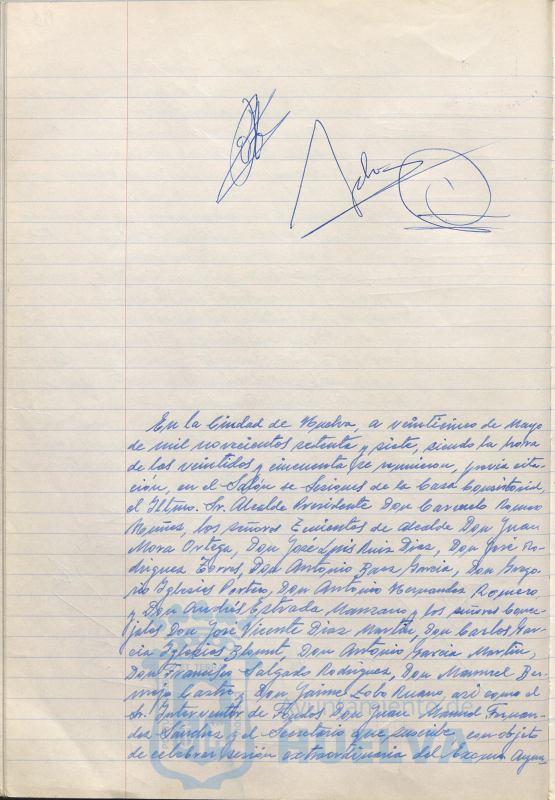 En la Ciudad de Huelva, a veinticinco de Mayo
de mil novecientos setenta y siete, siendo la hora
de las veintidos y cincuenta se reunieron, previa cita-
ción, en el Salón de Sesiones de la Casa Consistorial,
el Iltmo. Sr. Alcalde Presidente Don Carmelo Romero
Muñoz, los señores Tenientes de Alcalde Don Juan
Mora Ortega, Don José Luis Ruiz Diaz, Don José Ro-
driguez Torres, Don Antonio Baez Garcia, Don Grego-
rio Iglesias Portero, Don Antonio Hernandez Romero
y Don Andrés Estrada Manzano y los señores Conce-
jales Don José Vicente Diaz Martin, Don Carlos Gar-
cia Iglesias, Don Antonio Garcia Martin,
Don Francisco Salgado Rodriguez, Don Manuel Ber-
mejo Castro y Don Jaime Lobo Ruano, asi como el
Sr. Interventor de Fondos Don Juan Manuel Fernan-
dez Sánchez y el Secretario que suscribe, con objeto
de celebrar sesión extraordinaria del Excmo. Ayun-
Ayuntamiento de
HUELVA